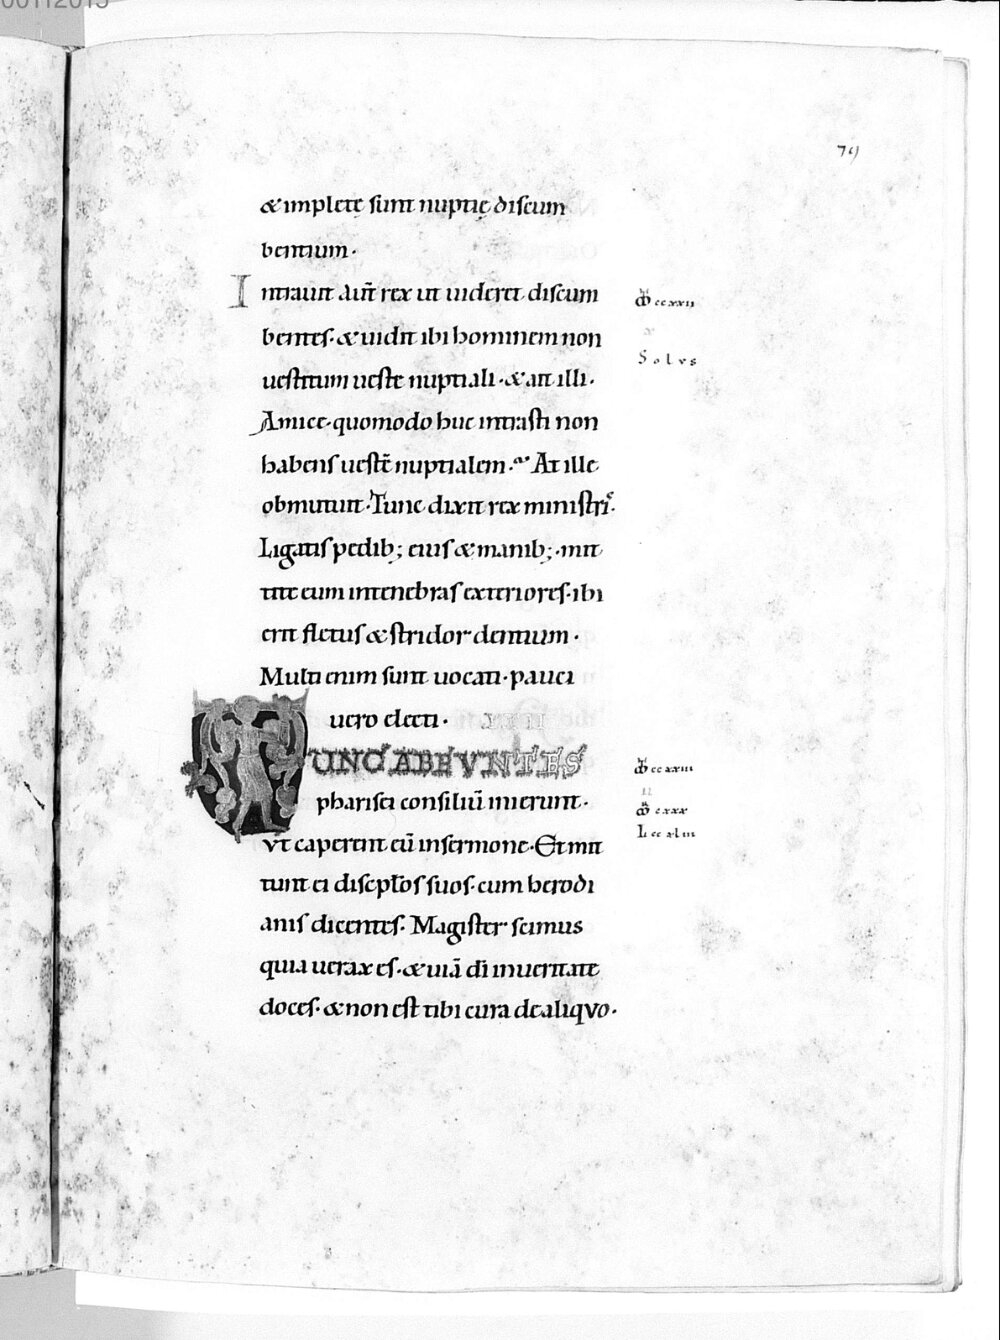 79
& implete sunt nuptię discum
bentium.
Intrauit aut̄ rex ut uideret discum
bentes. & uidit ibi hominem non
uestitum ueste nuptiali. & ait illi.
Amice. quomodo huc intrasti non
habens uestē nuptialem. At ille
obmutuit. Tunc dixit rex ministris.
Ligatis pedib; eius & manib; mit
tite eum in tenebras exteriores. ibi
erit fletus & stridor dentium.
Multi enim sunt uocati. pauci
uero electi.
TUNC ABEVNTES
pharisei consiliū inierunt.
vt caperent eū in sermone. Et mit
tunt ei discip̄los suos. cum herodi
anis dicentes. Magister scimus
quia uerax es. & uiā dī in ueritate
doces. & non est tibi cura de aliquo.
ccxxii
Solus
ccxxiii
cxxx
L ccxliii